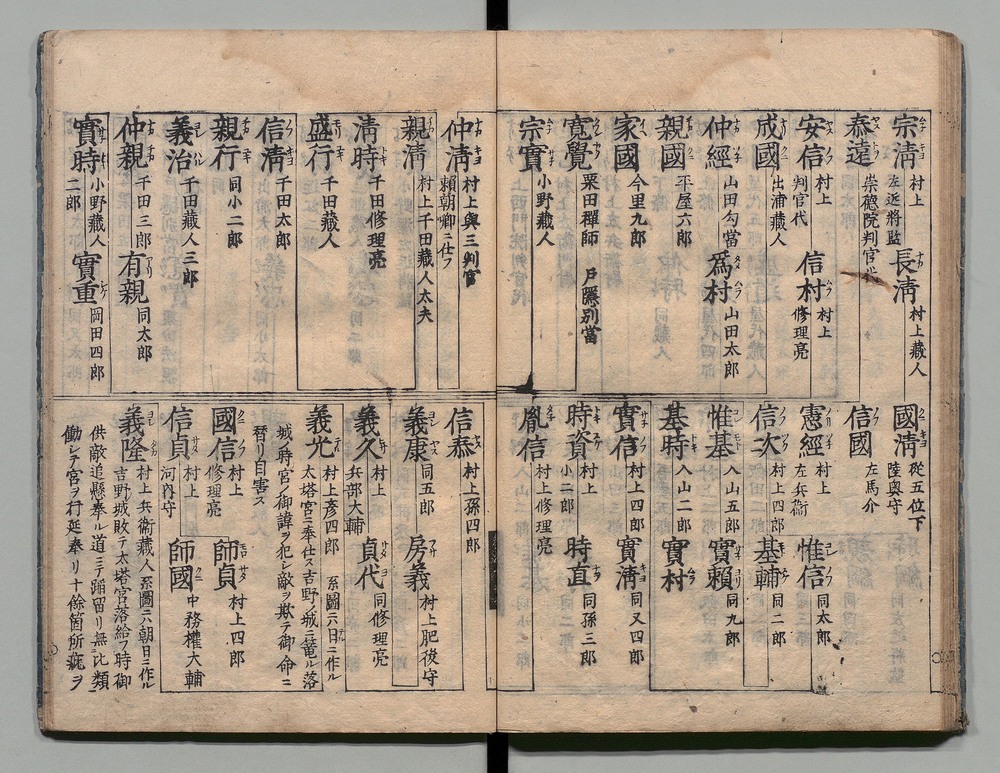 宗清 村上 左近將監
長清 村上藏人
泰遠 崇德院判官代
安信 村上 判官代
信村 村上 修理亮
成國 出浦藏人
仲經 山田勾當
為村 山田太郎
親國 平屋六郎
家國 今里九郎
寛覺 栗田禪師 戸隱別當
宗實 小野藏人
國清 從五位下 陸奥守
信國 左馬介
憲經 村上 左兵衛
惟信 同太郎
信次 村上四郎
基輔 同二郎
惟基 入山五郎
實賴 同九郎
基時 入山二郎
實村
實信 村上四郎
實清 同又四郎
時資 村上 小二郎
時直 同孫三郎
胤信 村上修理亮
仲清 村上與三判官 賴朝卿ニ仕フ
親清 村上千田藏人太夫
清時 千田修理亮
盛行 千田藏人
信清 千田太郎
親行 同小二郎
義治 千田藏人三郎
仲親 千田三郎
有親 同太郎
實時 小野藏人二郎
實重 岡田四郎
信泰 村上孫四郎
義康 同五郎
房義 村上肥後守
義久 村上 兵部大輔
貞代 同修理亮
義光 村上彦四郎 系圖ニ六日ニ作ル
太塔宮ニ奉仕ス吉野ノ城ニ篭ル落
城ノ時宮ノ御諱ヲ犯シ敵ヲ欺テ御命ニ
替リ自害ス
國信 村上 修理亮
師貞 村上四郎
信貞 村上 河内守
師國 中務權大輔
義隆 村上兵衞藏人 系圖ニ六朝日ニ作ル
吉野城敗テ太塔宮落給フ時御
供敵追懸奉ル道ニテ蹈留リ無比類
働シテ宮ヲ行延奉リ十餘箇所疵ヲ